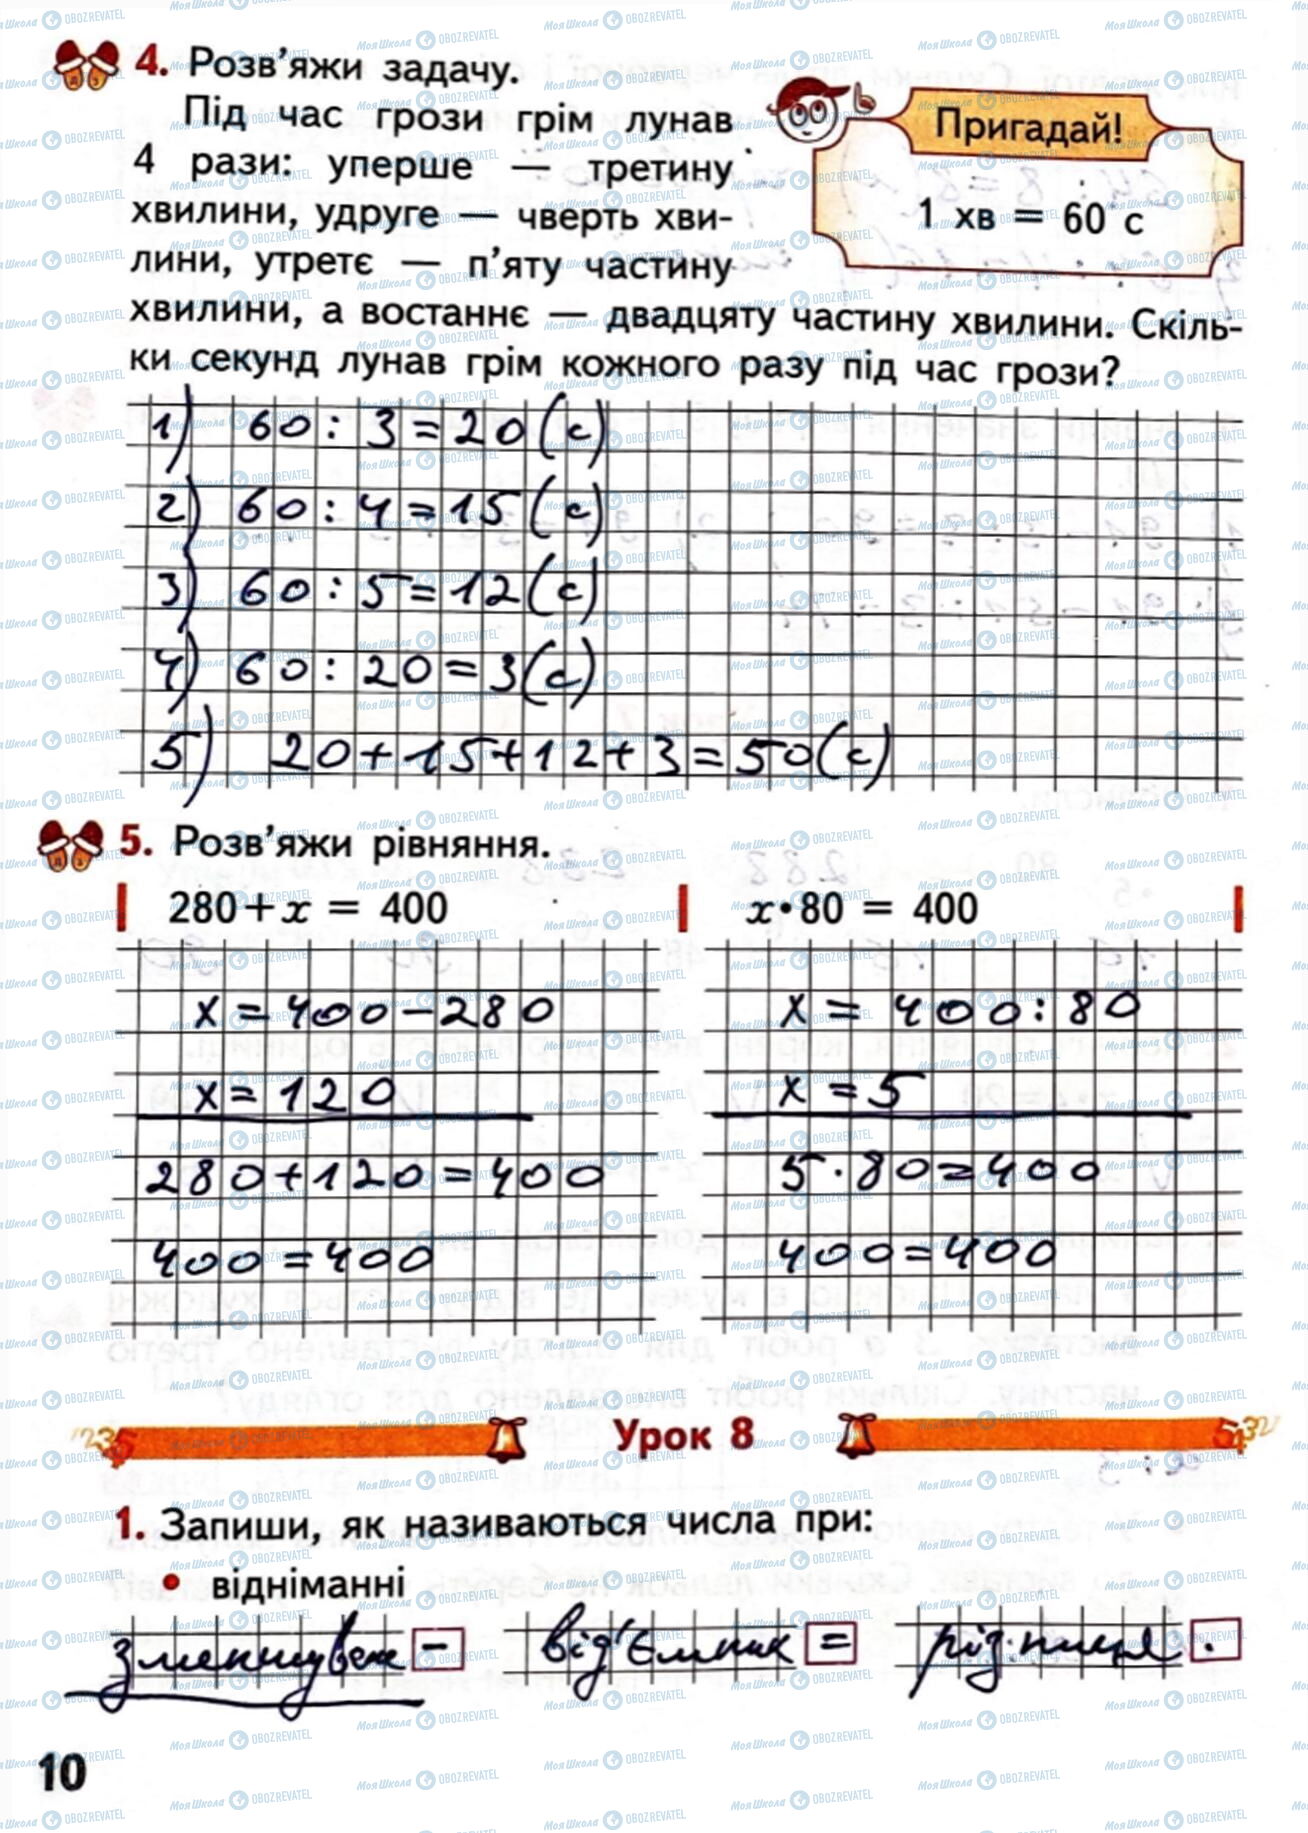 4. Розв'яжи задачу.
Під час грози грім лунав
4 рази: уперше — третину
хвилини, удруге — чверть хви-
лини, утретє — п'яту частину
хвилини, а востаннє — двадцяту частину хвилини. Скіль-
ки секунд лунав грім кожного разу під час грози?
Пригадай!
1 хв = 60 с
1) 60 : 3 = 20 (с)
2) 60 : 4 = 15 (с)
3) 60 : 5 = 12 (с)
4) 60 : 20 = 3 (с)
5) 20 + 15 + 12 + 3 = 50 (с)
5. Розв'яжи рівняння.
280 + x = 400
x = 400 - 280
x = 120
280 + 120 = 400
400 = 400
x • 80 = 400
x = 400 : 80
x = 5
5 · 80 = 400
400 = 400
Урок 8
1. Запиши, як називаються числа при:
• відніманні
зменшуване - від'ємник = різниця .
10
МояШкола OBOZREVATEL